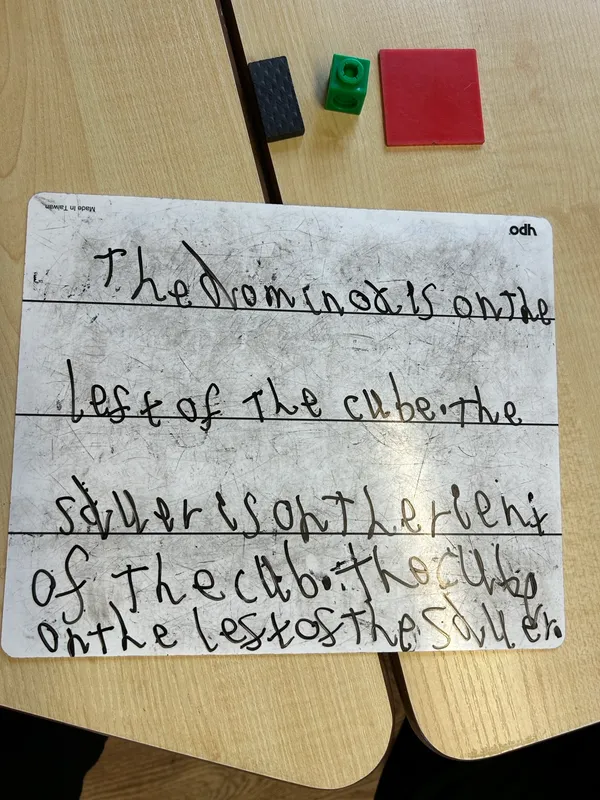 Made in Taiwan
hpo
The drominox is on the
left of the cube. the
squer is on the rient
of the cub. the cub
on the lest of the squer.